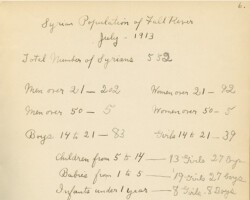 6.
Syrian Population of Fall River
July - 1913
Total Number of Syrians 552
Men over 21 - 202 Women over 21 - 92
Men over 50 - 5 Women over 50 - 5
Boys 14 to 21 - 83 Girls 14 to 21 - 39
Children from 5 to 14 - 13 Girls 27 Boys
Babies from 1 to 5 - 19 Girls 27 Boys
Infants under 1 year - 8 Girls 8 Boys